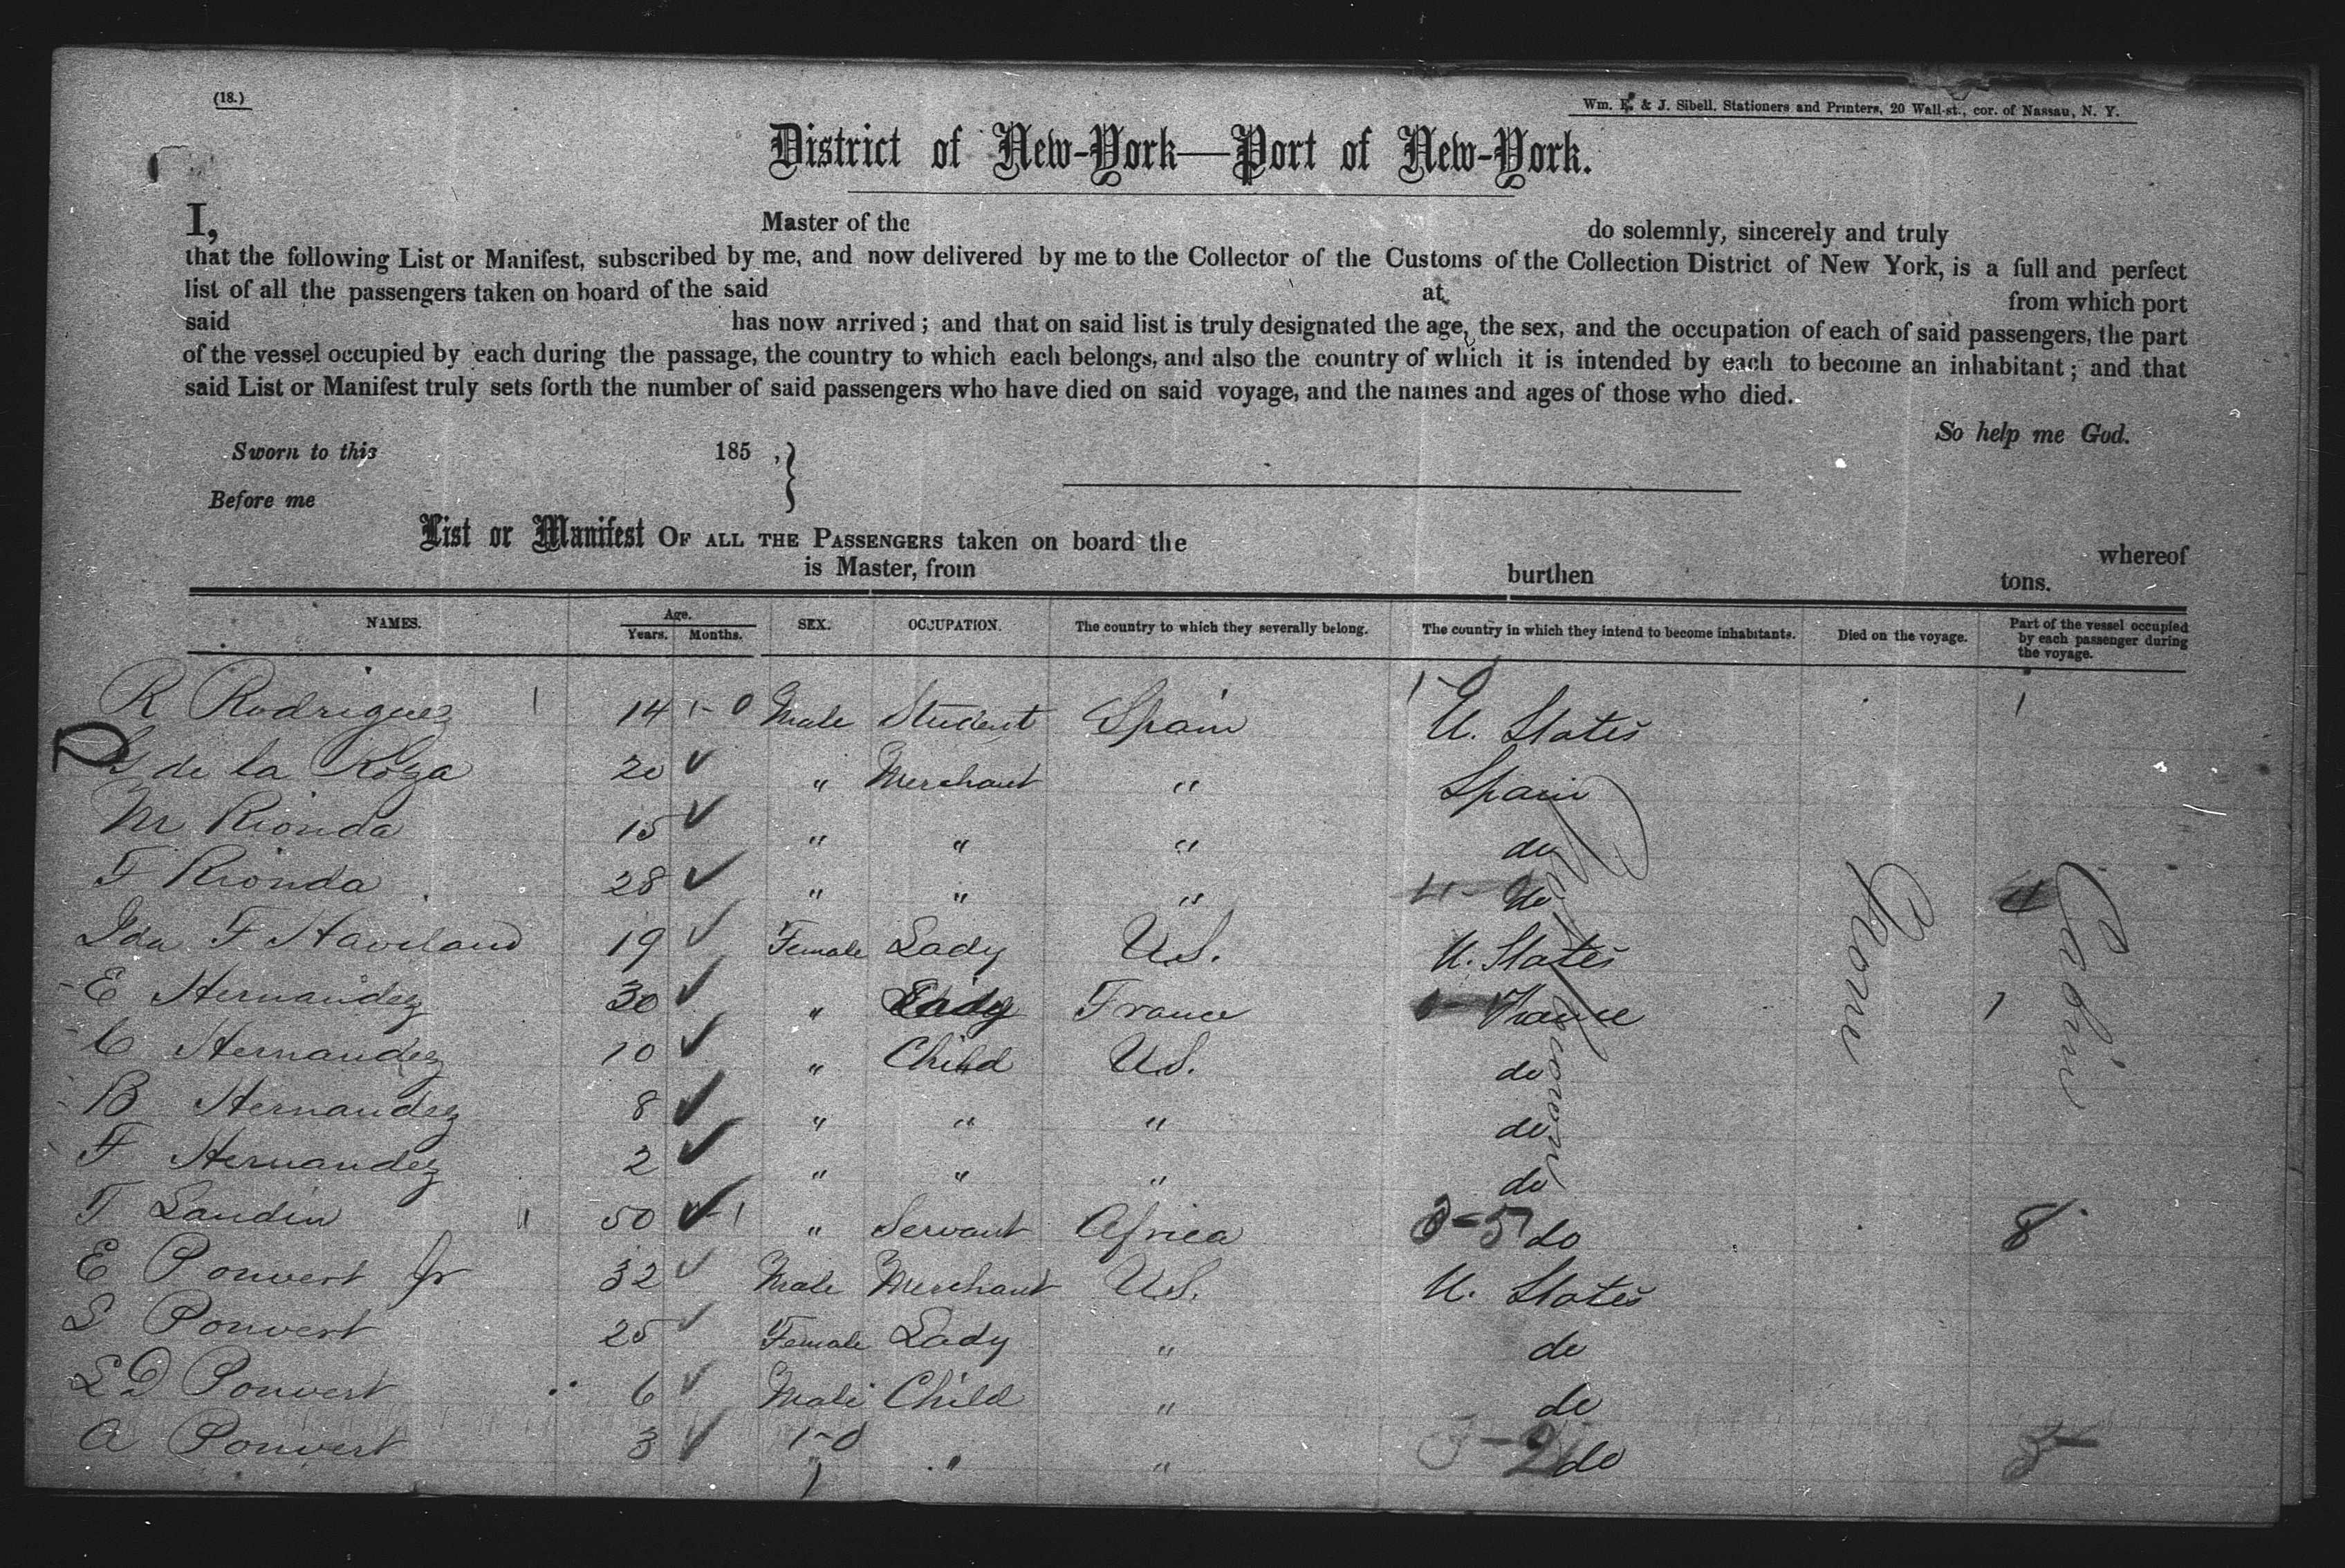 (18.)
Wm. E. & J. Sibell, Stationers and Printers, 20 Wall-st., cor. of Nassau, N. Y.
District of New-York—Port of New-York.
I, Master of the do solemnly, sincerely and truly
that the following List or Manifest, subscribed by me, and now delivered by me to the Collector of the Customs of the Collection District of New York, is a full and perfect
list of all the passengers taken on board of the said at from which port
said has now arrived; and that on said list is truly designated the age, the sex, and the occupation of each of said passengers, the part
of the vessel occupied by each during the passage, the country to which each belongs, and also the country of which it is intended by each to become an inhabitant; and that
said List or Manifest truly sets forth the number of said passengers who have died on said voyage, and the names and ages of those who died.
So help me God.
Sworn to this 185 ,
Before me
List or Manifest OF ALL THE PASSENGERS taken on board the whereof
is Master, from burthen tons.
NAMES. Age. Years. Months. SEX. OCCUPATION. The country to which they severally belong. The country in which they intend to become inhabitants. Died on the voyage. Part of the vessel occupied by each passenger during the voyage.
R Rodriguez 1 14 1-0 Male Student Spain 1-0 U. States 1
de la Roza 20 ✓ " Merchant " Spain
M Rionda 15 ✓ " " " do
F Rionda 28 ✓ " " " 4- do 4
Ida F Haviland 19 ✓ Female Lady U.S. U. States
E Hernandez 30 ✓ " Lady France France 1
C Hernandez 10 ✓ " Child U.S. do
B Hernandez 8 ✓ " " " do
F Hernandez 2 ✓ " " " do
T Landin 11 50 ✓-1 " Servant Africa 3-5 do 8
E Ponvert Jr 32 ✓ Male Merchant U.S. U. States
L Ponvert 25 ✓ Female Lady " do
L D Ponvert 6 ✓ Male Child " do
A Ponvert 3 ✓ 1-0 " " " 3-2 do 5
None
Cabin